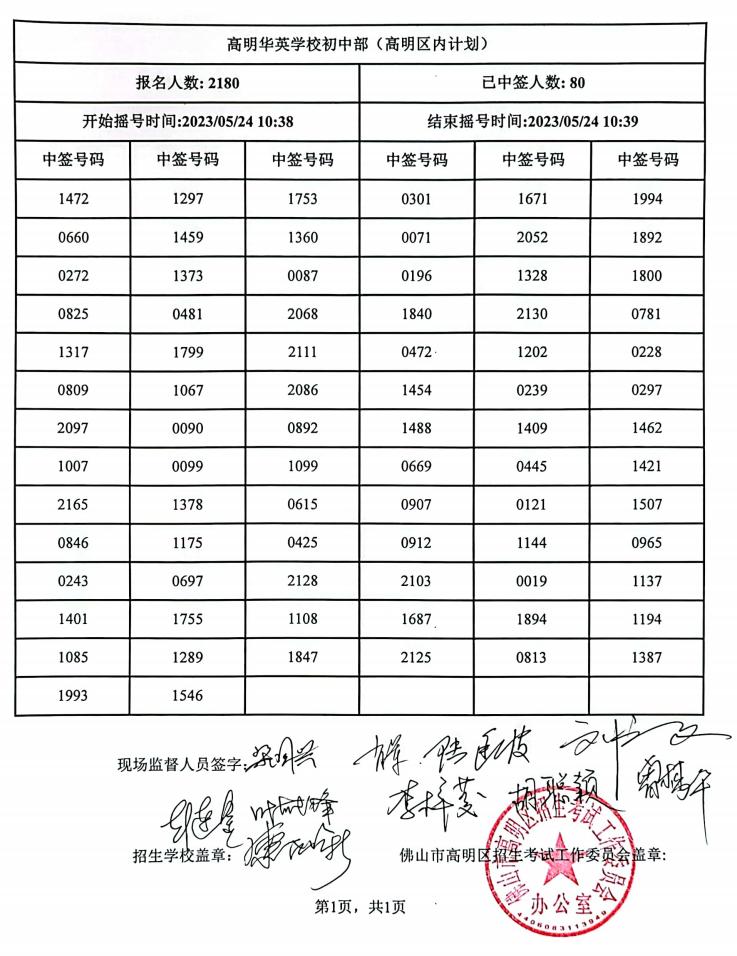 高明华英学校初中部（高明区内计划）
报名人数: 2180 已中签人数: 80
开始摇号时间:2023/05/24 10:38 结束摇号时间:2023/05/24 10:39
中签号码 中签号码 中签号码 中签号码 中签号码 中签号码
1472 1297 1753 0301 1671 1994
0660 1459 1360 0071 2052 1892
0272 1373 0087 0196 1328 1800
0825 0481 2068 1840 2130 0781
1317 1799 2111 0472 1202 0228
0809 1067 2086 1454 0239 0297
2097 0090 0892 1488 1409 1462
1007 0099 1099 0669 0445 1421
2165 1378 0615 0907 0121 1507
0846 1175 0425 0912 1144 0965
0243 0697 2128 2103 0019 1137
1401 1755 1108 1687 1894 1194
1085 1289 1847 2125 0813 1387
1993 1546
现场监督人员签字:
招生学校盖章: 佛山市高明区招生考试工作委员会盖章:
佛山市高明区招生考试工作委员会
办公室
4406083113949
第1页，共1页